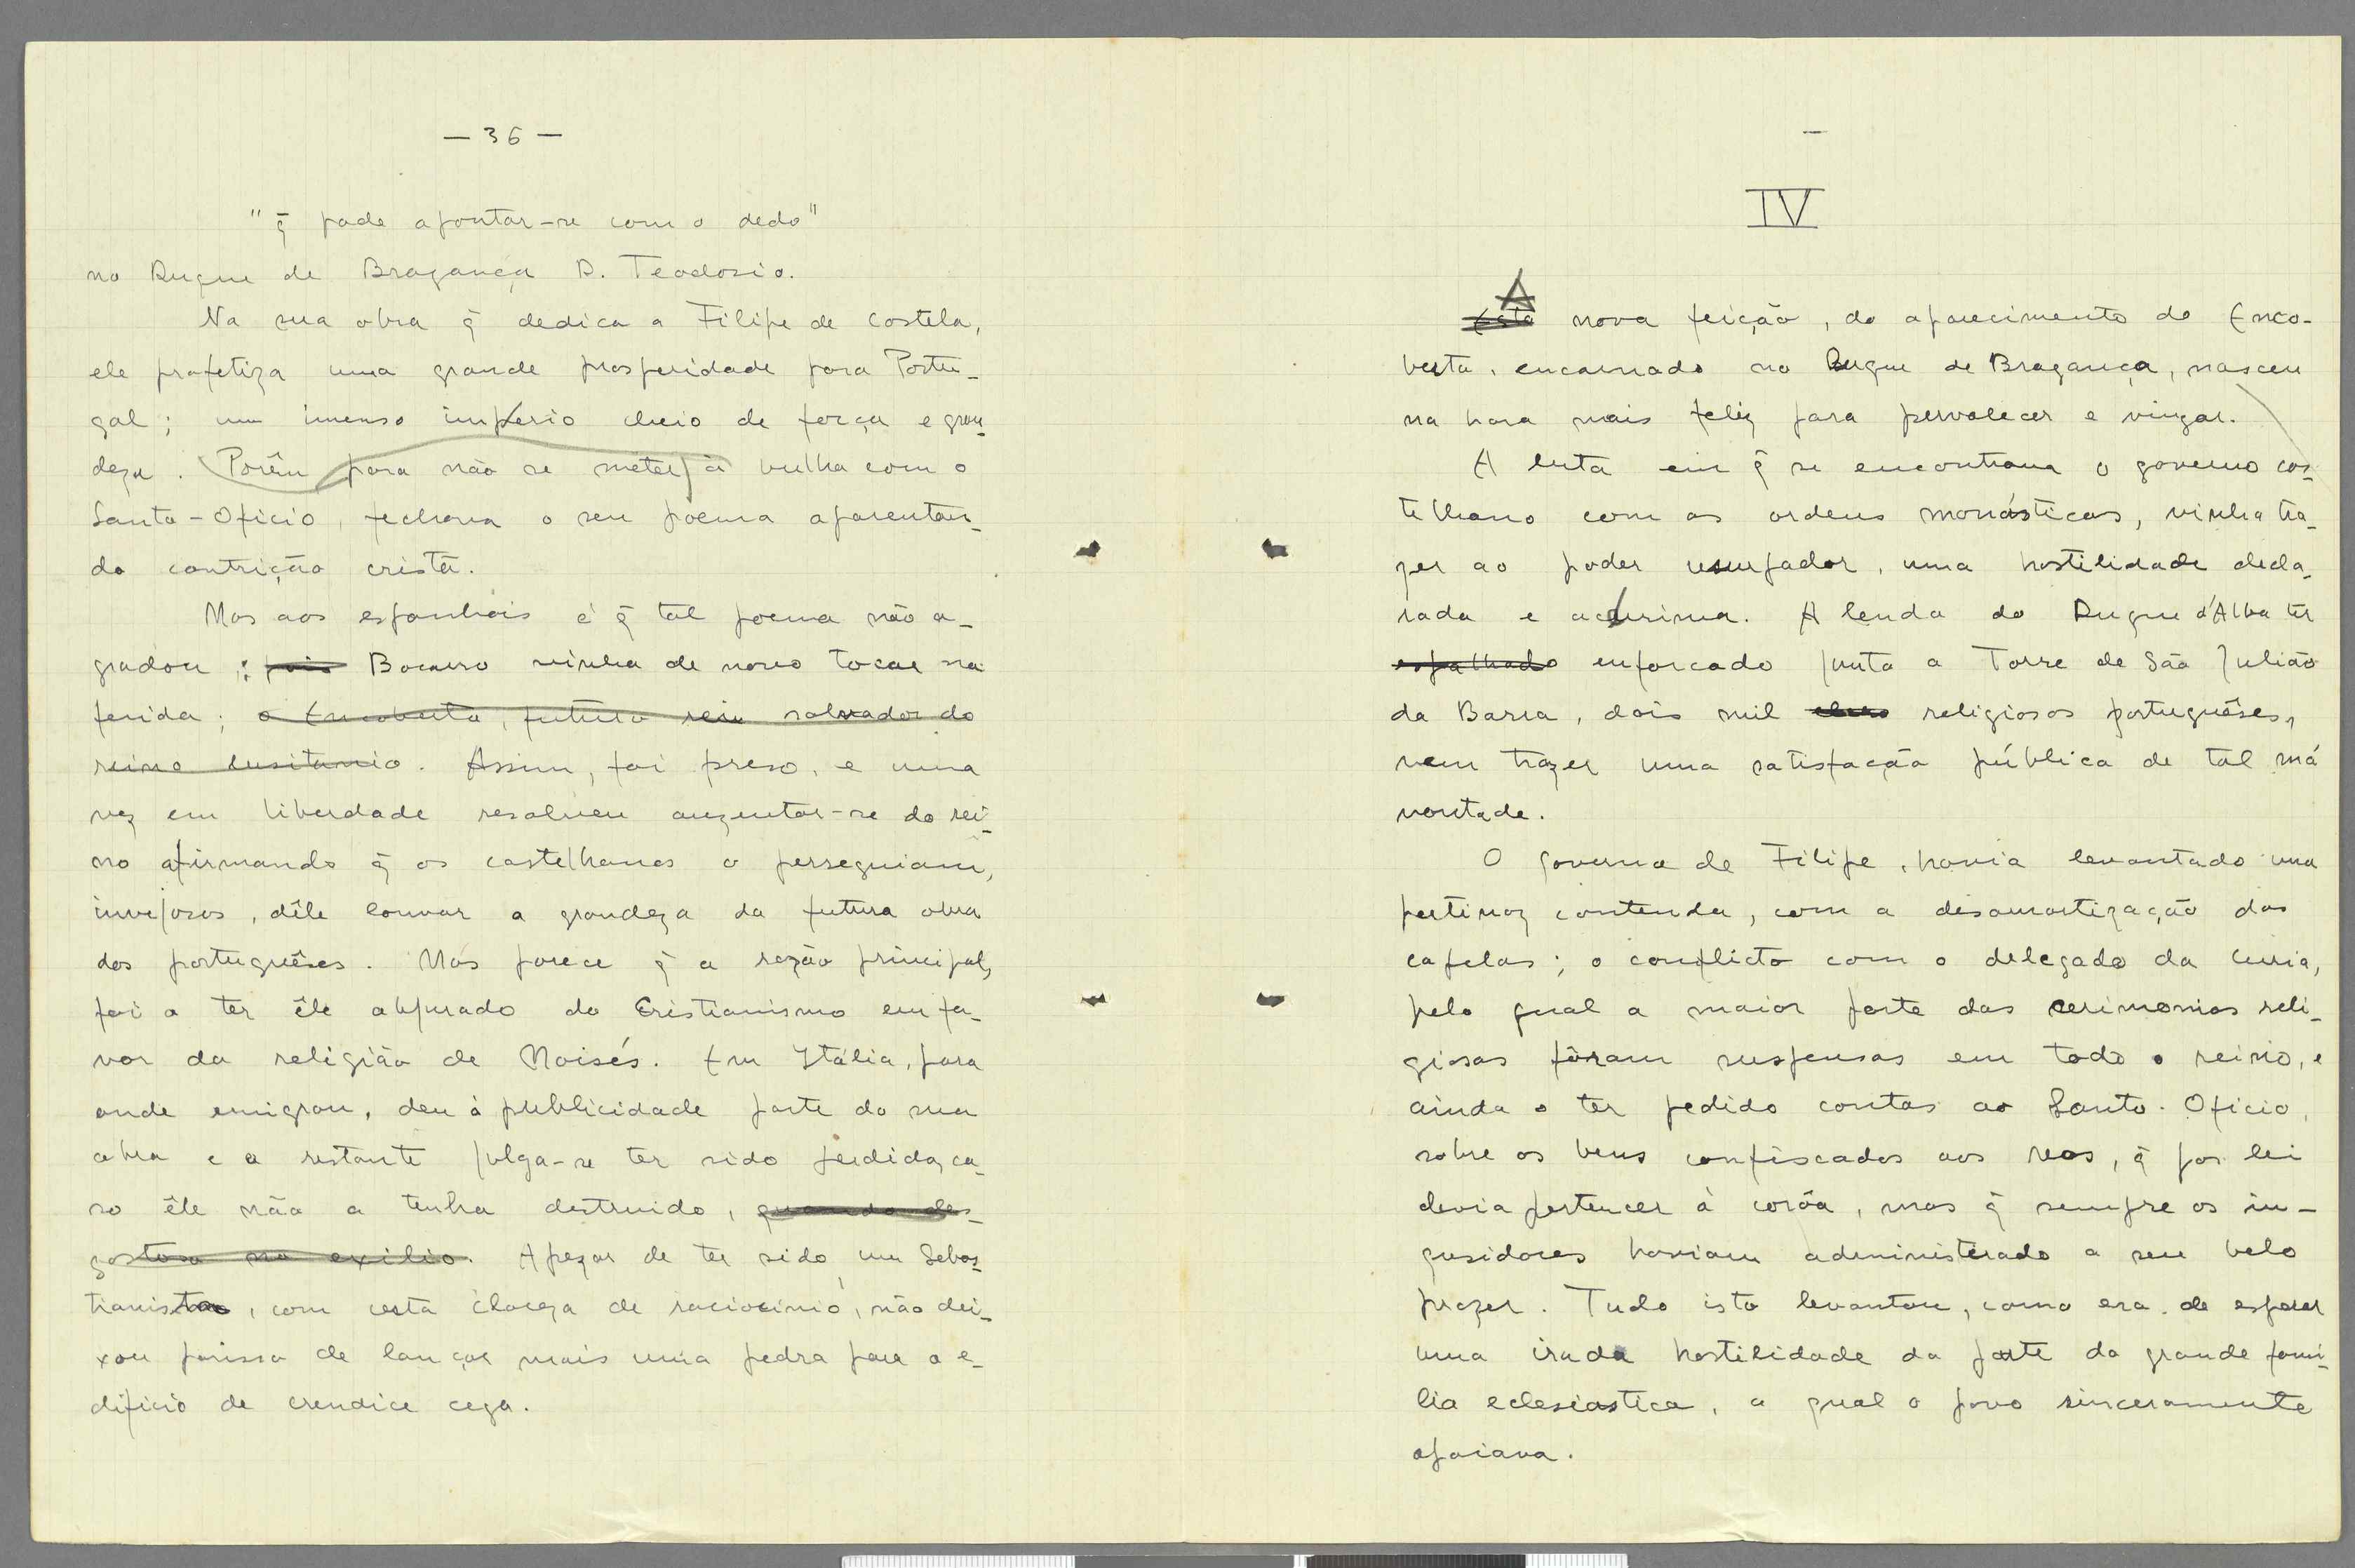 — 36 —
"q̃ pode apontar-se com o dedo"
no Duque de Bragança D. Teodosio.
Na sua obra q̃ dedica a Filipe de Castela,
ele profetiza uma grande prosperidade para Portu-
gal; um imenso imperio cheio de força e gran-
deza. Porêm para não se meter á bulha com o
Santo-Oficio, fechava o seu poema aparentan-
do contrição cristã.
Mas aos espanhois é q̃ tal poema não a-
gradou; pois Bocarro vinha de novo tocar na
ferida; o Encoberto, futuro rei salvador do
reino lusitanio. Assim, foi preso, e uma
vez em liberdade resolveu auzentar-se do rei-
no afirmando q̃ os castelhanos o perseguiam,
invejosos, dêle louvar a grandeza da futura obra
dos portuguêses. Mas parece q̃ a razão principal,
foi o ter êle abjurado do Cristianismo em fa-
vor da religião de Moisés. Em Itália, para
onde emigrou, deu á publicidade parte da sua
obra e a restante julga-se ter sido perdida, ca-
so êle não a tenha destruido, quando des-
gostoso no exilio. Apezar de ter sido um Sebas-
tianista, com certa clareza de raciocinio, não dei-
xou porisso de lançar mais uma pedra para o e-
dificio de crendice cega.
IV
Esta A nova feição, do aparecimento do Enco-
berto, encarnado no Duque de Bragança, nasceu
na hora mais feliz para pervalecer e vingar.
A luta em q̃ se encontrava o governo cas-
telhano com as ordens monásticas, vinha tra-
zer ao poder usurpador, uma hostilidade decla-
rada e acerrima. A lenda do Duque d'Alba ter
espalhado enforcado junto a Torre de São Julião
da Barra, dois mil religiosos portuguêses,
vem trazer uma satisfação pública de tal má
vontade.
O governo de Filipe, havia levantado uma
pertinaz contenda, com a desamortização das
capelas; o conflicto com o delegado da Curia,
pelo qual a maior parte das cerimonias reli-
giosas fôram suspensas em todo o reino, e
ainda o ter pedido contas ao Santo-Oficio,
sobre os bens confiscados aos reos, q̃ por lei
devia pertencer á corôa, mas q̃ sempre os in-
quisidores haviam administrado a seu belo
prazer. Tudo isto levantou, como era de esperar
uma irada hostilidade da parte da grande fami-
lia eclesiastica, a qual o povo sinceramente
apoiava.